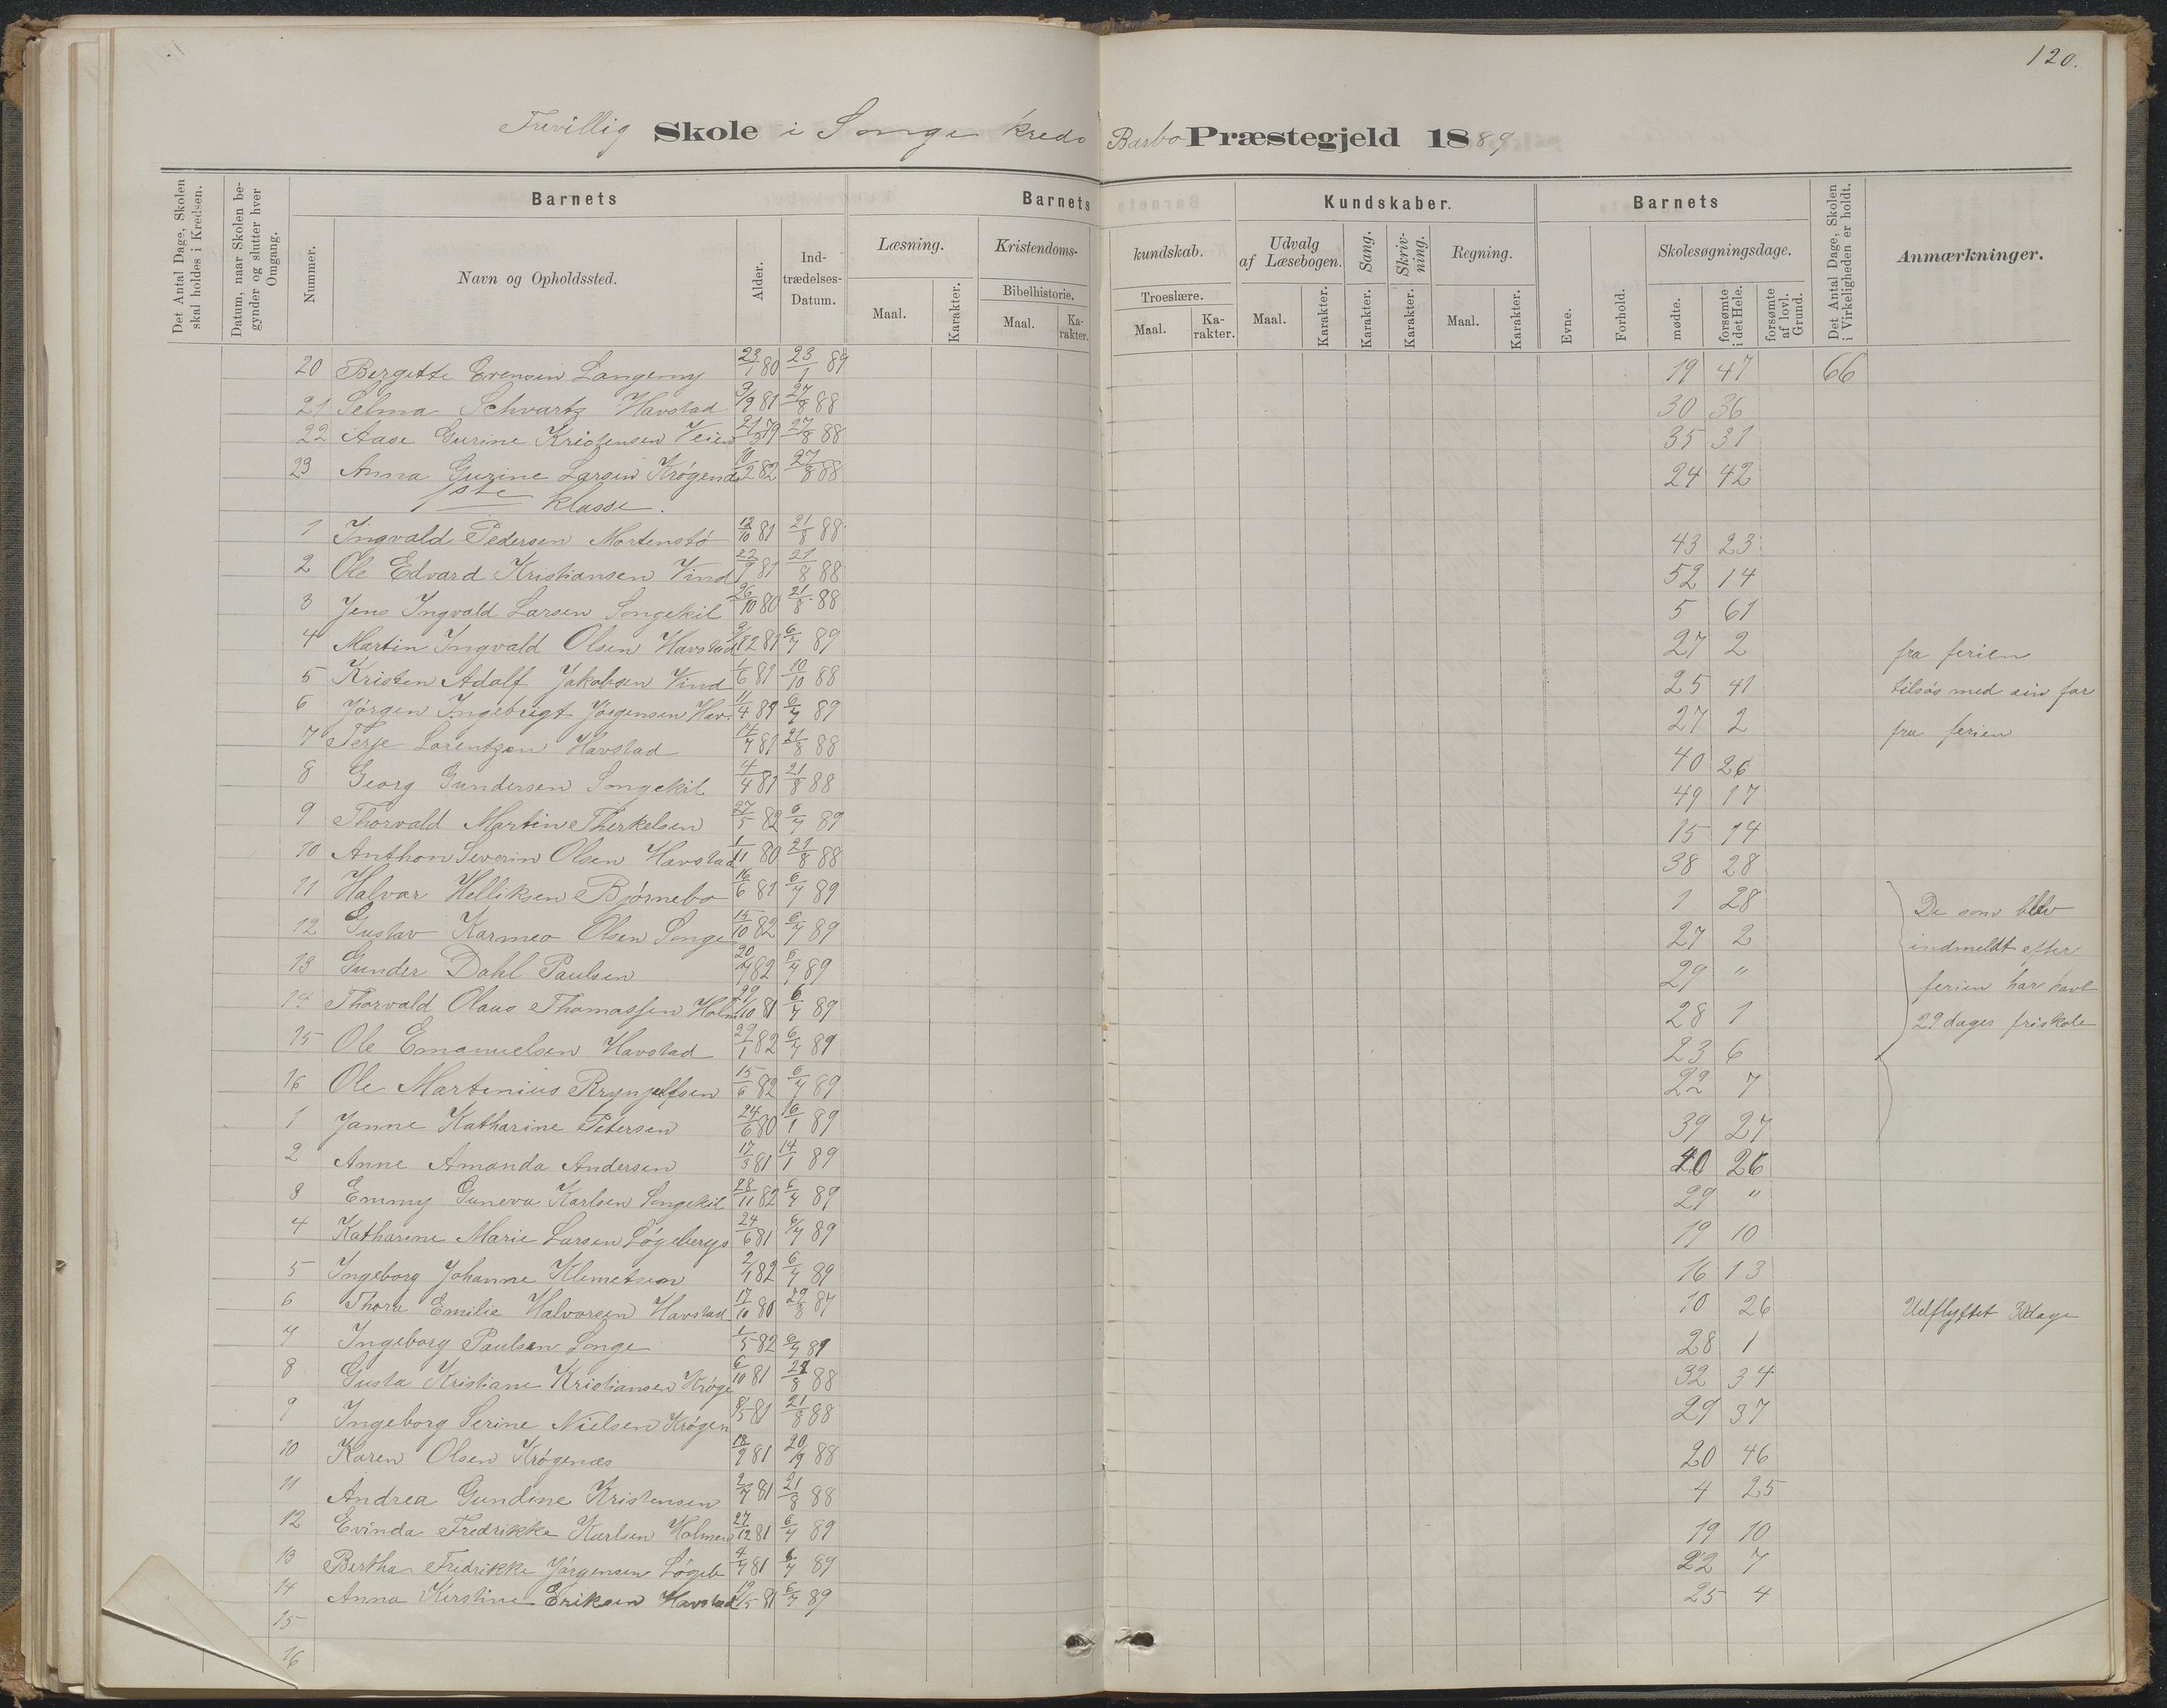 120.
Frivillig Skole i Songe kreds Barbo Præstegjeld 1889
Det Antal Dage, Skolen skal holdes i Kredsen.
Datum, naar Skolen begynder og slutter hver Omgang.
Nummer.
Barnets
Navn og Opholdssted.
Alder.
Indtrædelses-Datum.
Barnets Kundskaber.
Læsning.
Maal.
Karakter.
Kristendoms-kundskab.
Bibelhistorie.
Maal.
Karakter.
Troeslære.
Maal.
Karakter.
Udvalg af Læsebogen.
Maal.
Karakter.
Sang.
Karakter.
Skrivning.
Karakter.
Regning.
Maal.
Karakter.
Barnets
Evne.
Forhold.
Skolesøgningsdage.
mødte.
forsømte i det Hele.
forsømte af lovl. Grund.
Det Antal Dage, Skolen i Virkeligheden er holdt.
Anmærkninger.
20 Bergitte Evensen 23/1 80 23/1 89 19 47 66
21 Selma Schvartz Havstad 9/9 81 27/8 88 30 36
22 Aase Gurine Kristensen Veien 79 27/8 88 35 31
23 Anna Gurine Larsen Krøgenæs 10/2 82 27/8 88 24 42
1ste klasse.
1 Ingvald Pedersen Mortensbø 12/10 81 21/8 88 43 23
2 Ole Edvard Kristiansen Vind 22/9 81 21/8 88 52 14
3 Jens Ingvald Larsen Songekil 26/10 80 21/8 88 5 61
4 Martin Ingvald Olsen Havstad 3/12 81 6/7 89 27 2 fra ferien
5 Kristen Adolf Jakobsen Vind 1/6 81 10/10 88 25 41 tilsøs med sin far
6 Jørgen Ingebrigt Jørgensen Hav. 11/4 89 6/7 89 27 2 fra ferien
7 Terje Lorentzen Havstad 14/7 81 21/8 88 40 26
8 Georg Gundersen Songekil 4/4 81 21/8 88 49 17
9 Thorvald Martin Therkelsen 27/5 82 6/7 89 15 14
10 Anthon Severin Olsen Havstad 1/11 80 21/8 88 38 28
11 Halvar Helliksen Bjørnebo 16/6 81 6/7 89 1 28 De som blev
12 Gustav Karmeo Olsen Songe 15/10 82 6/7 89 27 2 indmeldt efter
13 Gunder Dahl Paulsen 82 6/7 89 29 " ferien har havt
14 Thorvald Olaus Thomassen Holm 29/10 81 6/7 89 28 1 29 dages friskole
15 Ole Emanuelsen Havstad 29/1 82 6/7 89 23 6
16 Ole Martinius Brynjulfsen 15/6 82 6/7 89 22 7
1 Janne Katharine Petersen 24/6 80 16/1 89 39 27
2 Anne Amanda Andersen 17/3 81 14/1 89 40 26
3 Emmy Guneva Karlsen Songekil 28/11 82 6/7 89 29 "
4 Katharine Marie Larsen Løgebergs 24/6 81 6/7 89 19 10
5 Ingeborg Johanne Klemetsen 82 6/7 89 16 13
6 Thora Emilie Halvorsen Havstad 17/10 80 29/8 87 10 26 Udflyttet
7 Ingeborg Paulsen Songe 1/5 82 6/7 89 28 1
8 Gusta Kristiane Kristiansen Krøge 6/10 81 21/8 88 32 34
9 Ingeborg Serine Nielsen Krøgen 8/5 81 21/8 88 29 37
10 Karen Olsen Krøgenæs 18/9 81 20/9 88 20 46
11 Andrea Gundine Kristensen 2/7 81 21/8 88 4 25
12 Evinda Fredrikke Karlsen Holmen 27/12 81 6/7 89 19 10
13 Bertha Fredrikke Jørgensen Løgeb 4/7 81 6/7 89 22 7
14 Anna Kirstine Eriksen Havstad 19/5 81 6/7 89 25 4
15
16